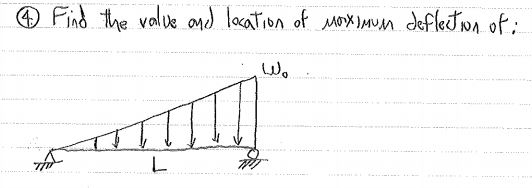 ④ Find the value and location of maximum deflection of:
W₀
L